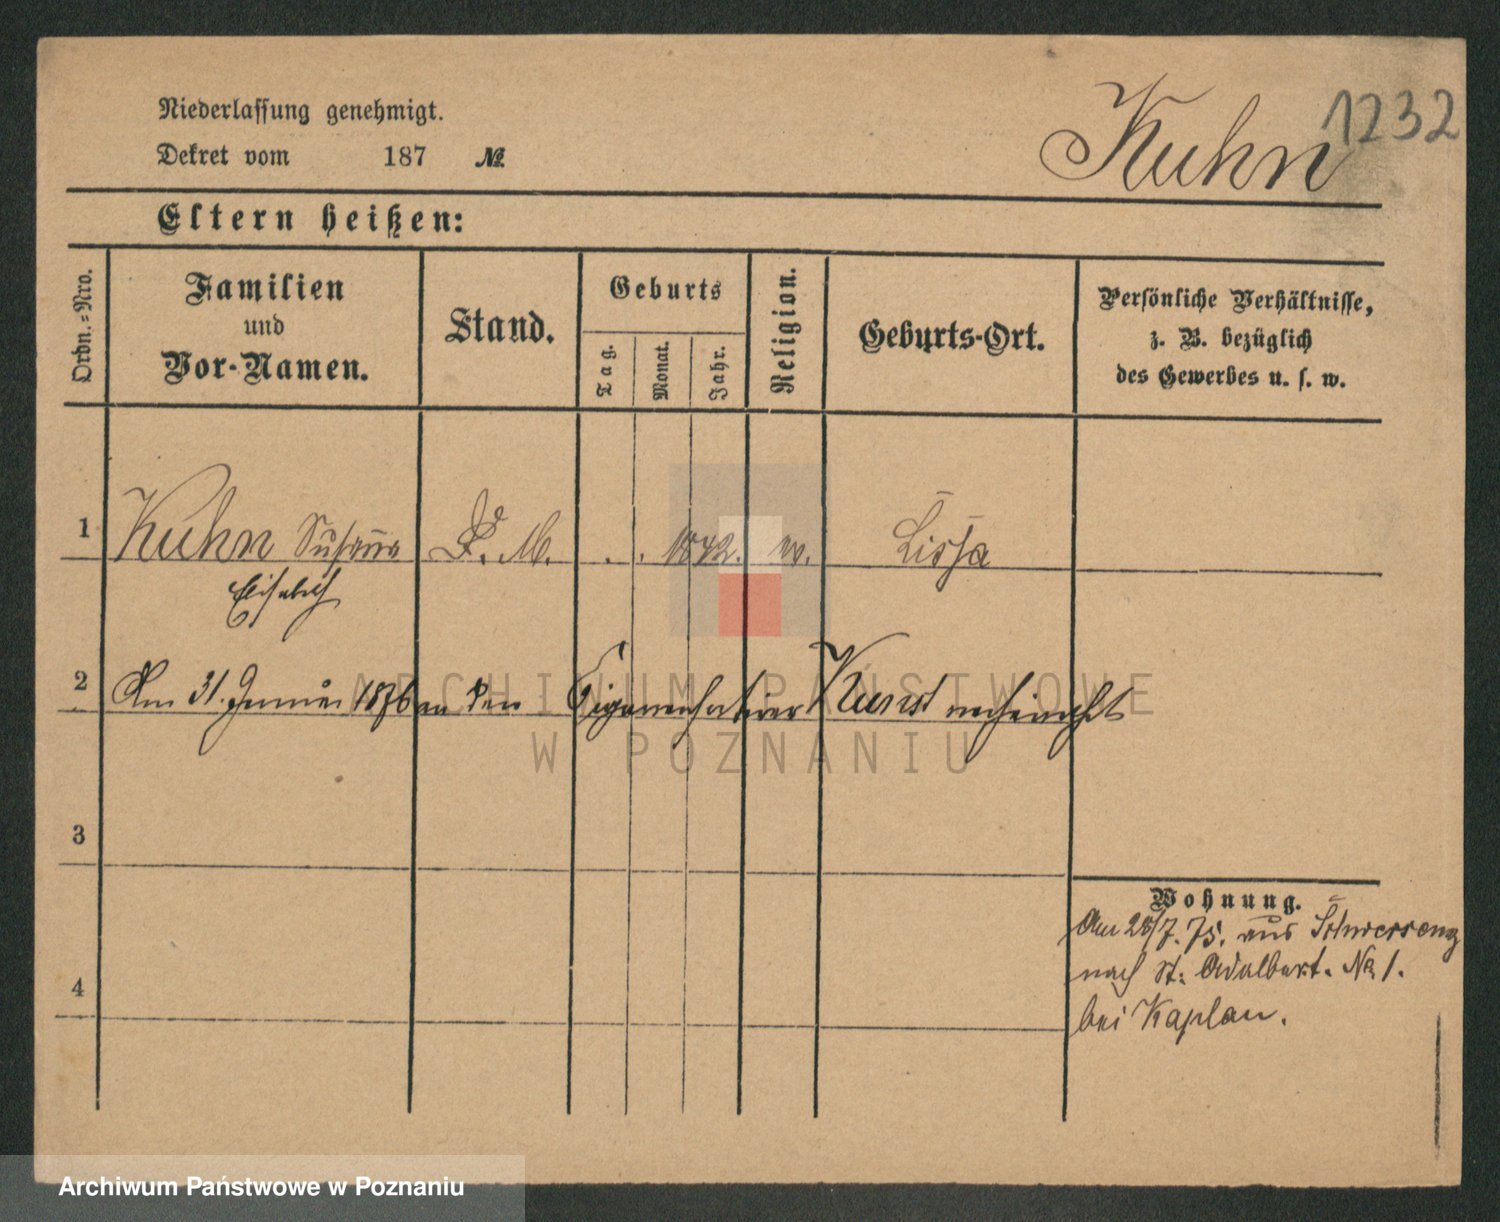 Niederlassung genehmigt.
Dekret vom 187 №
Kuhn
1232
Eltern heißen:
Ordn.-Nro.
Familien
und
Vor-Namen.
Stand.
Geburts
Tag.
Monat.
Jahr.
Religion.
Geburts-Ort.
Persönliche Verhältnisse,
z. B. bezüglich
des Gewerbes u. s. w.
1 Kuhn Susanna D. M. . . 1842. ev. Lissa
Elisabeth
2 Am 31. Januar 1876 an den Cigarrensortirer Kunst verheirathet
ARCHIWUM PAŃSTWOWE
W POZNANIU
3
Wohnung.
Am 28/7. 75. aus Schwersenz
nach St: Adalbert. No 1.
bei Kaplan.
4
Archiwum Państwowe w Poznaniu